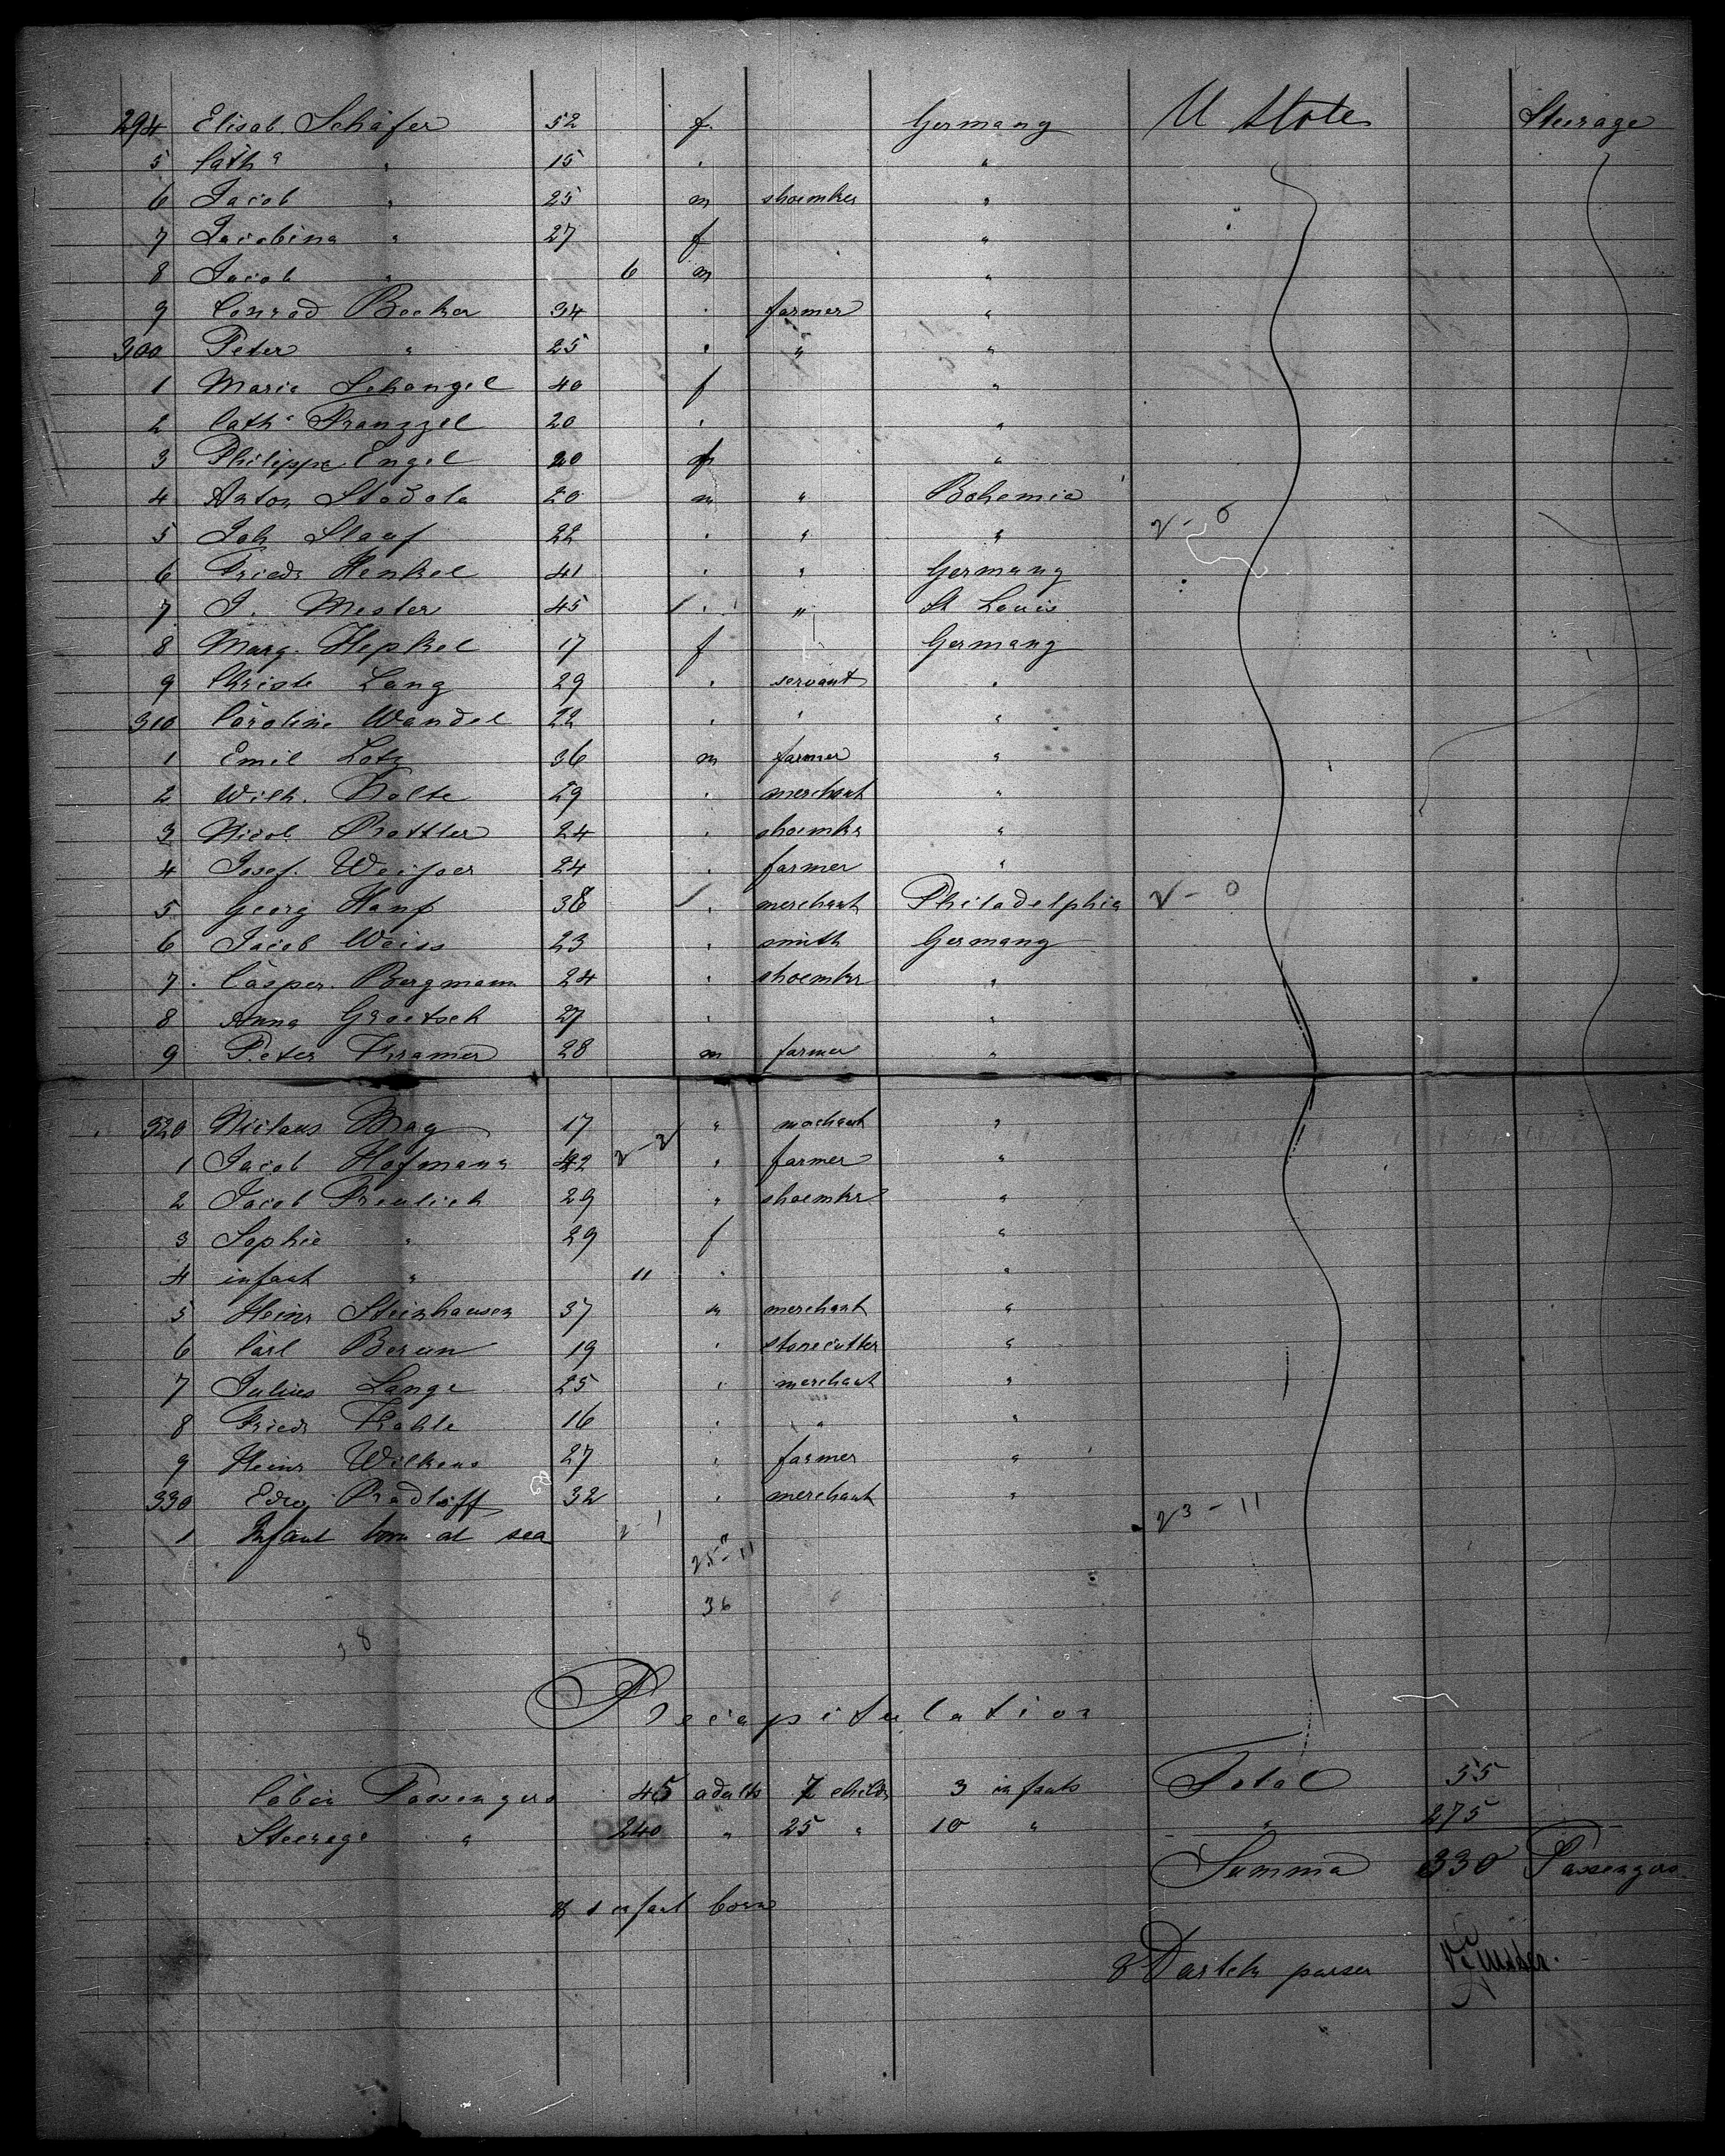 294 Elisab. Schäfer 52 f. Germany U State Steerage
5 Cath.a " 15 " "
6 Jacob " 25 m shoemker "
7 Jacobina " 27 f "
8 Jacob " 6 m "
9 Conrad Becker 34 " farmer "
300 Peter " 25 " " "
1 Maria Schangel 40 f "
2 Cath.a Franzzel 20 " "
3 Philippe Engel 20 f "
4 Anton Stadola 20 m " Bohemia
5 Joh Slauf 22 " " "
6 Friedr Henkel 41 " " Germany
7 J. Mester 45 " " St Louis
8 Marg. Hepkel 17 f Germany
9 Christe Lang 29 " servant "
310 Caroline Wandel 22 " " "
1 Emil Lotz 36 m farmer "
2 Wilh. Nolte 29 " merchant "
3 Nicol. Prottler 24 " shoemkr "
4 Josef. 24 " farmer "
5 Georg Hanf 38 " merchant Philadelphia
6 Jacob Weiss 23 " smith Germany
7 Casper Bergmann 24 " shoemkr "
8 Anna Groetsch 27 " "
9 Peter Kramer 28 m farmer "
320 Niclaus May 17 " "
1 Jacob Hofmann 42 " farmer "
2 Jacob Freulich 29 " shoemkr "
3 Sophie " 29 f "
4 infant " 11 " "
5 Heinr Steinhausen 37 m merchant "
6 Carl 19 " stonecutter "
7 Julius Lange 25 " merchant "
8 Friedr Kahle 16 " " "
9 Heinr Wilkens 27 " farmer "
330 Edw Radloff 32 " merchant "
23-11
1 Infant born at sea
25-11
36
38
Recapitulation
Cabin Passengers 45 adults 7 childr 3 infants Total 55
Steerage " 240 " 25 " 10 " " 275
Summa 330 Passengers
& 1 infant born
purser